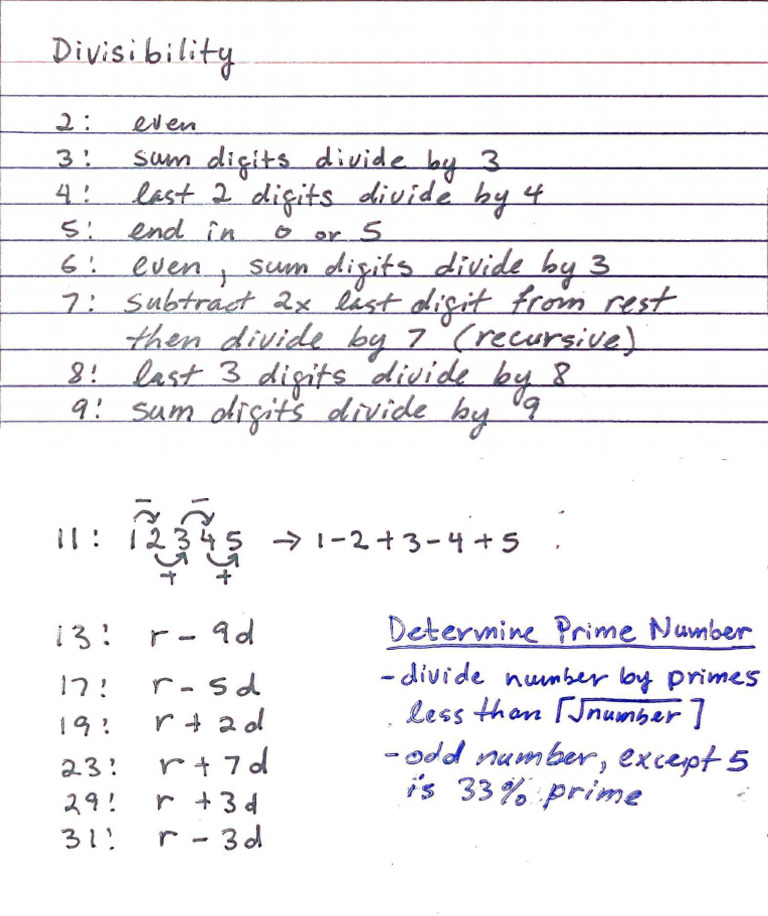 Divisibility
2: even
3: sum digits divide by 3
4: last 2 digits divide by 4
5: end in 0 or 5
6: even, sum digits divide by 3
7: subtract 2x last digit from rest
then divide by 7 (recursive)
8: last 3 digits divide by 8
9: sum digits divide by 9
− −
11: 12345 → 1-2+3-4+5
+ +
13: r - 9d
17: r - 5d
19: r + 2d
23: r + 7d
29: r + 3d
31: r - 3d
Determine Prime Number
- divide number by primes
less than ⌈√number⌉
- odd number, except 5
is 33% prime